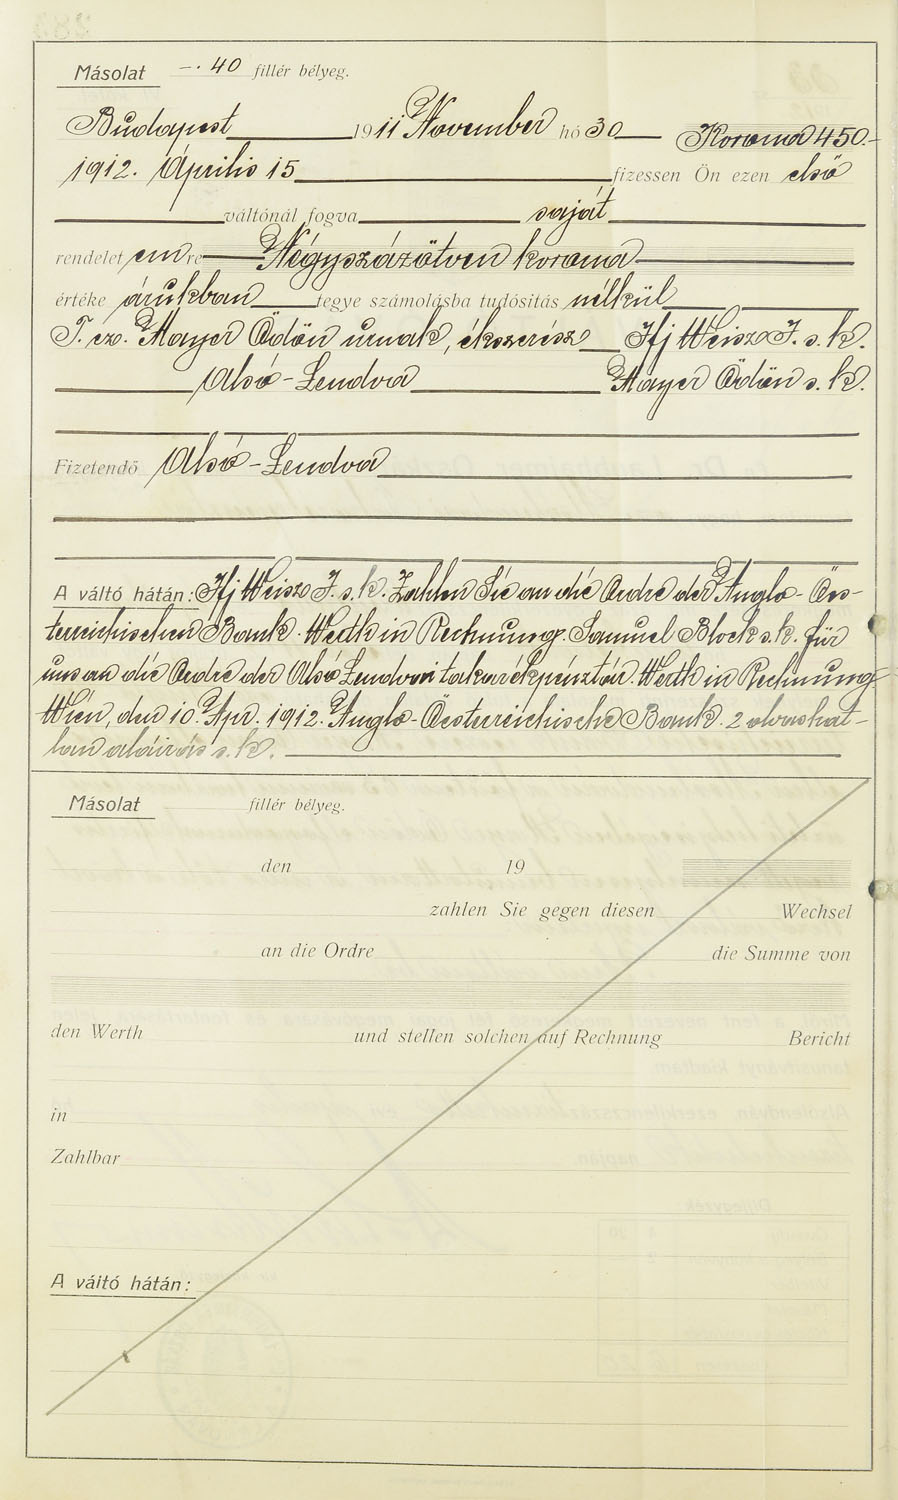 Másolat —·40 fillér bélyeg.
Budapest 1911 November hó 30 Korona 450.–
1912. Április 15 fizessen Ön ezen első
váltónál fogva saját
rendelet em re Négyszázötven korona
értéke árukban tegye számolásba tudósitás nélkül
T. cz. Mayer Ödön urnak, ékszerész Ifj Weisz J. s. k.
Alsó-Lendva Mayer Ödön s. k.
Fizetendő Alsó-Lendva
A váltó hátán: Ifj Weisz J. s. k. Zahlen Sie an die Ordre der Anglo-Öes-
terreichischen Bank. Werth in Rechnung. Samuel Block s. k. für
uns an die Ordre der Alsó Lendvai takarékpénztár. Werth in Rechnung
Wien, den 10. Apr. 1912. Anglo-Öesterreichische Bank. 2 olvashat-
lan aláirás s. k.
Másolat fillér bélyeg.
den 19
zahlen Sie gegen diesen Wechsel
an die Ordre die Summe von
den Werth und stellen solchen auf Rechnung Bericht
in
Zahlbar
A váltó hátán: